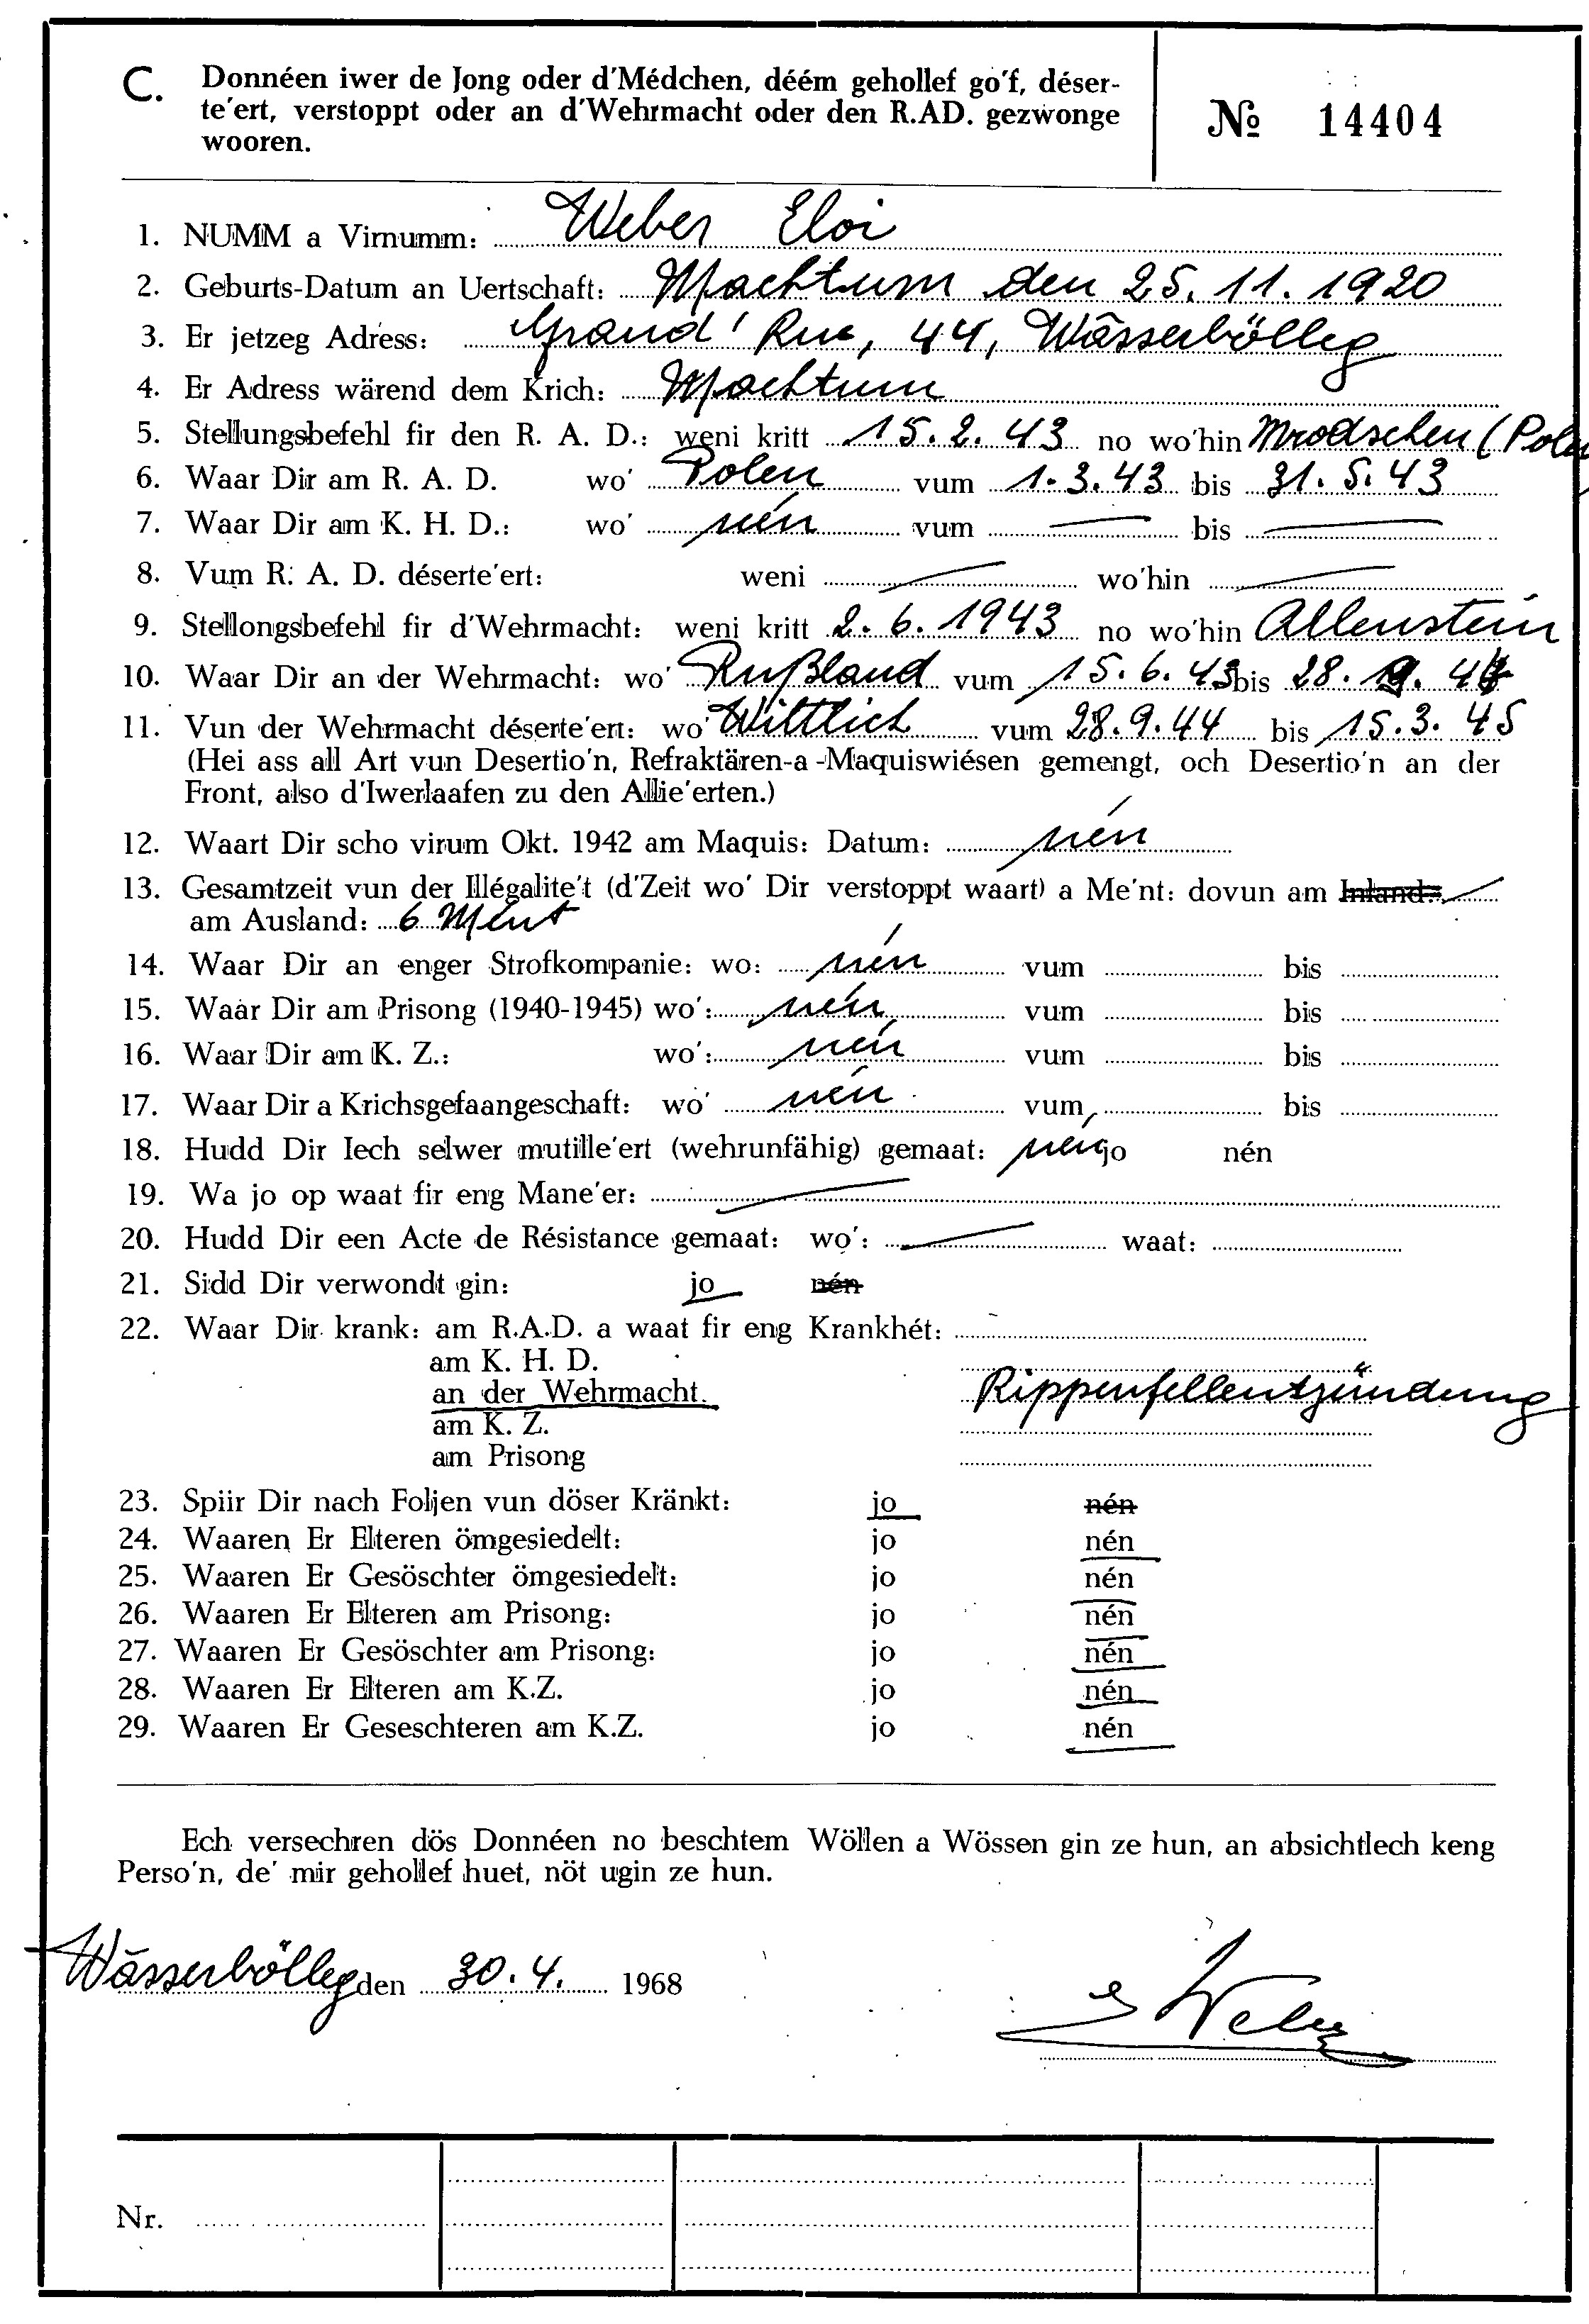 C. Donnéen iwer de Jong oder d'Médchen, déém gehollef go'f, déser-
te'ert, verstoppt oder an d'Wehrmacht oder den R.AD. gezwonge
wooren.
№ 14404
1. NUMM a Virnumm: Weber Eloi
2. Geburts-Datum an Uertschaft: Machtum den 25.11.1920
3. Er jetzeg Adress: Grand'Rue, 44, Wâsserbölleg
4. Er Adress wärend dem Krich: Machtum
5. Stellungsbefehl fir den R. A. D.: weni kritt 15.2.43 no wo'hin Mrodschen (Polen
6. Waar Dir am R. A. D. wo' Polen vum 1.3.43 bis 31.5.43
7. Waar Dir am K. H. D.: wo' nén vum — bis —
8. Vum R. A. D. déserte'ert: weni — wo'hin —
9. Stellongsbefehl fir d'Wehrmacht: weni kritt 2.6.1943 no wo'hin Allenstein
10. Waar Dir an der Wehrmacht: wo' Rußland vum 15.6.43 bis 28.9.44
11. Vun der Wehrmacht déserte'ert: wo' Wittlich vum 28.9.44 bis 15.3.45
(Hei ass all Art vun Desertio'n, Refraktären-a -Maquiswiésen gemengt, och Desertio'n an der
Front, also d'Iwerlaafen zu den Allie'erten.)
12. Waart Dir scho virum Okt. 1942 am Maquis: Datum: nén
13. Gesamtzeit vun der Illégalite't (d'Zeit wo' Dir verstoppt waart) a Me'nt: dovun am Inland: —
am Ausland: 6 Ment
14. Waar Dir an enger Strofkompanie: wo: nén vum bis
15. Waar Dir am Prisong (1940-1945) wo': nén vum bis
16. Waar Dir am K. Z.: wo': nén vum bis
17. Waar Dir a Krichsgefaangeschaft: wo' nén vum bis
18. Hudd Dir Iech selwer mutille'ert (wehrunfähig) gemaat: nén jo nén
19. Wa jo op waat fir eng Mane'er: —
20. Hudd Dir een Acte de Résistance gemaat: wo': — waat:
21. Sidd Dir verwondt gin: jo nén
22. Waar Dir krank: am R.A.D. a waat fir eng Krankhét:
am K. H. D.
an der Wehrmacht. Rippenfellentzündung
am K. Z.
am Prisong
23. Spiir Dir nach Foljen vun döser Kränkt: jo nén
24. Waaren Er Elteren ömgesiedelt: jo nén
25. Waaren Er Gesöschter ömgesiedelt: jo nén
26. Waaren Er Elteren am Prisong: jo nén
27. Waaren Er Gesöschter am Prisong: jo nén
28. Waaren Er Elteren am K.Z. jo nén
29. Waaren Er Geseschteren am K.Z. jo nén
Ech versechren dös Donnéen no beschtem Wöllen a Wössen gin ze hun, an absichtlech keng
Perso'n, de' mir gehollef huet, nöt ugin ze hun.
Wâsserbölleg den 30.4. 1968
E Weber
Nr.